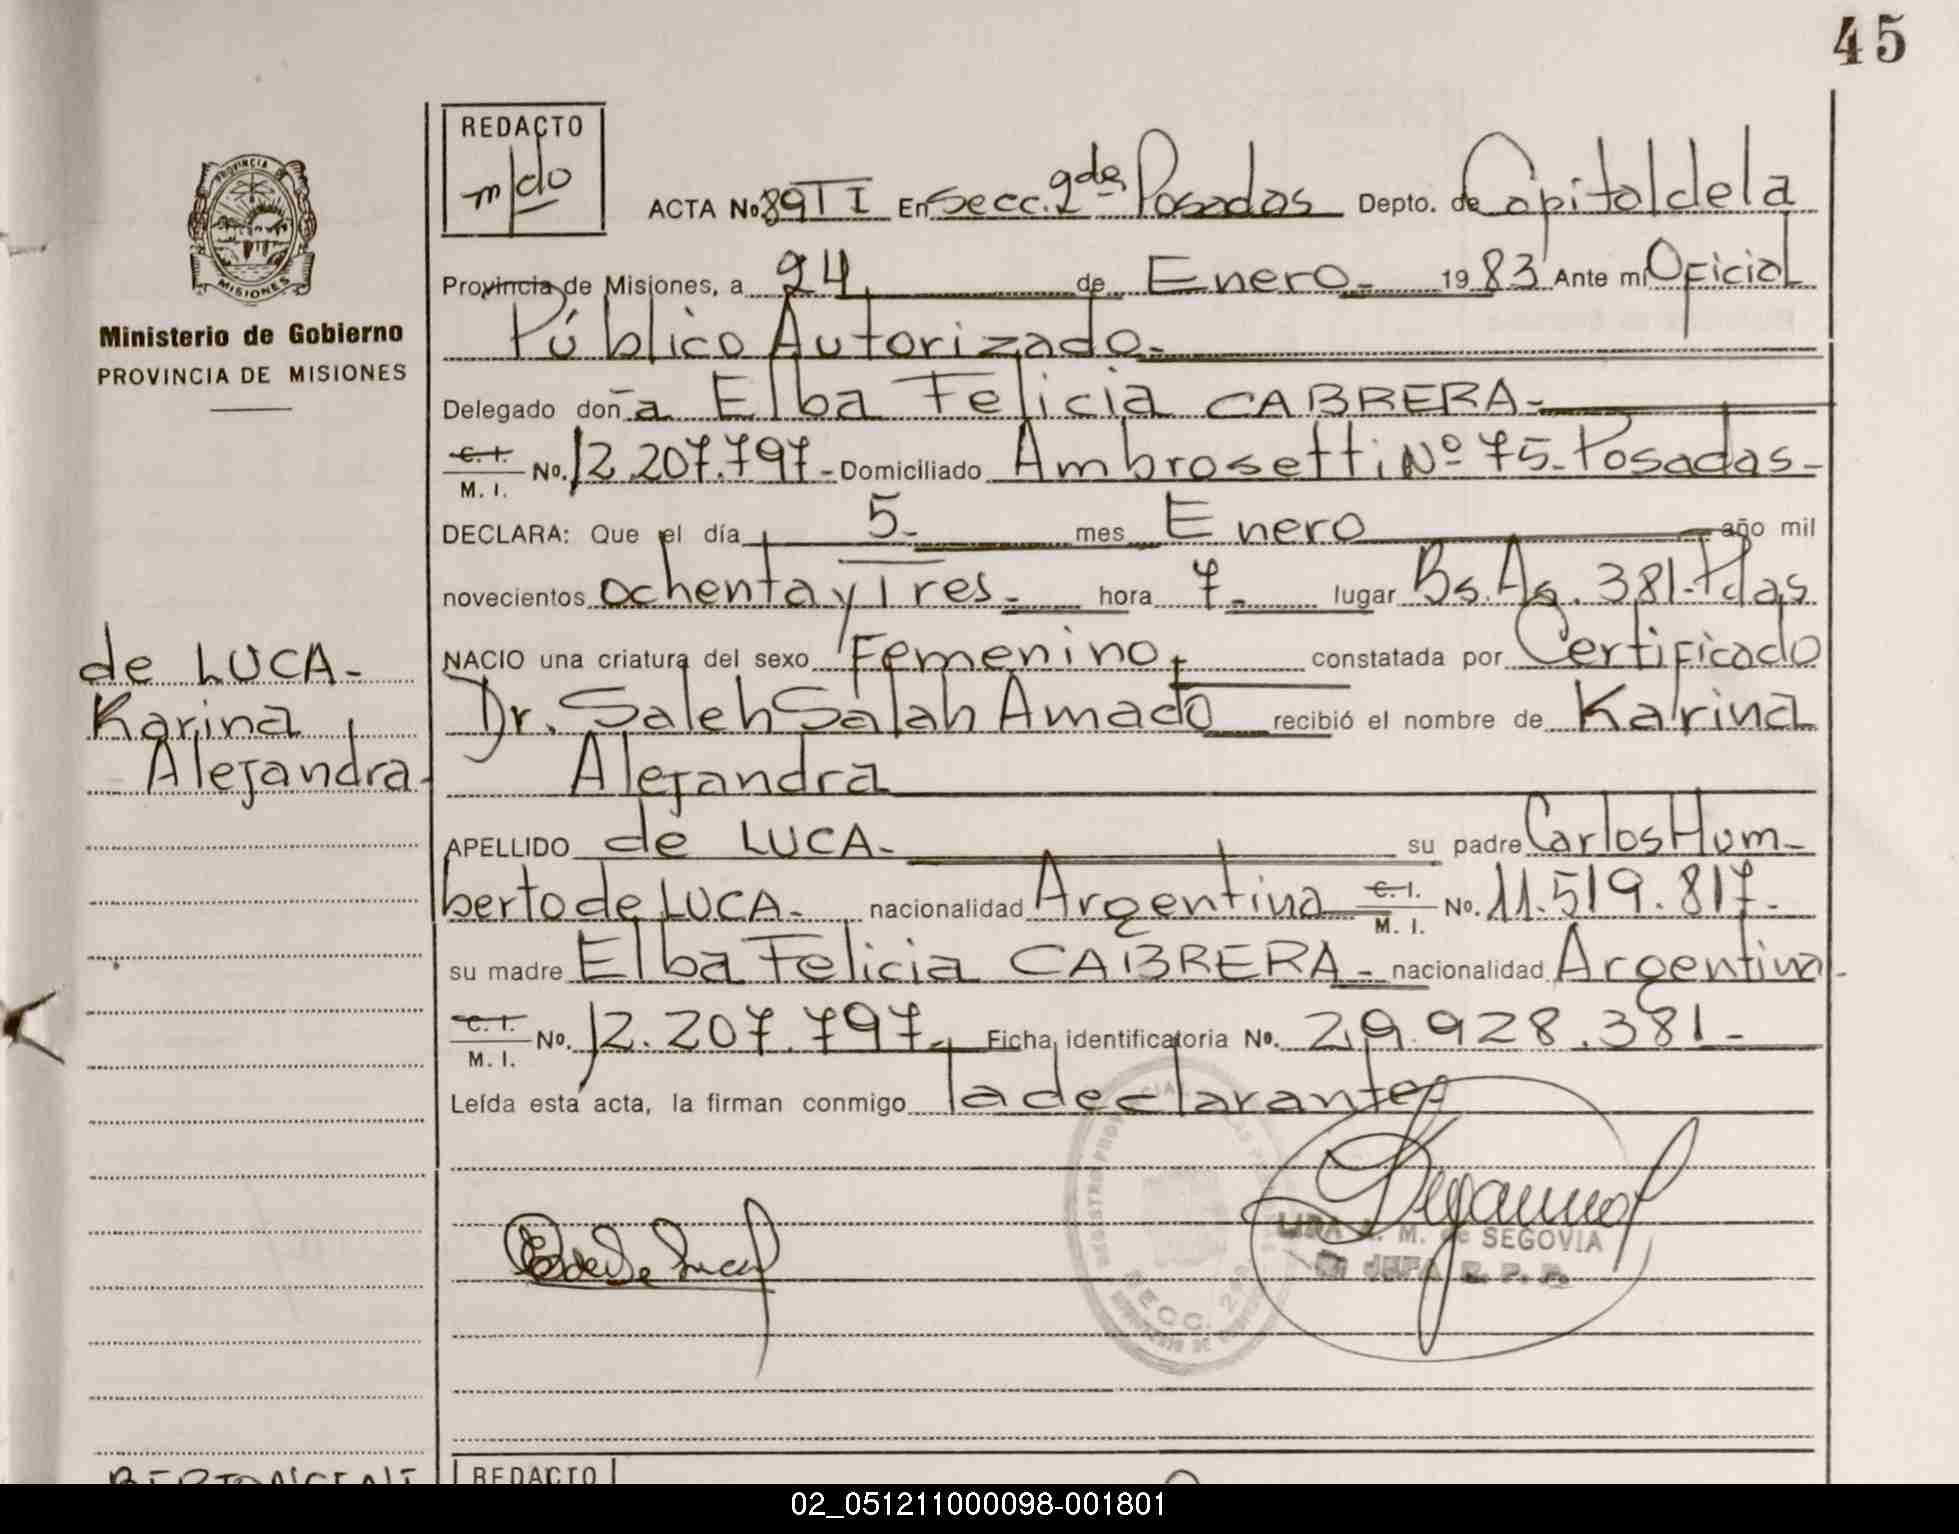 45
REDACTO
m/do
ACTA No. 89 T I En Secc. 2da Posadas Depto. de Capital de la
PROVINCIA
MISIONES
Provincia de Misiones, a 24 de Enero 1983 Ante mí Oficial
Ministerio de Gobierno
PROVINCIA DE MISIONES
Público Autorizado
Delegado don a Elba Felicia CABRERA
C. I. M. I. No. 12.207.797 Domiciliado Ambrosetti Nº 75 - Posadas
DECLARA: Que el día 5 mes Enero año mil
novecientos ochenta y Tres hora 7 lugar Bs. As. 381 - Pdas
NACIO una criatura del sexo Femenino constatada por Certificado
Dr. Saleh Salah Amado recibió el nombre de Karina
Alejandra
de LUCA
Karina
Alejandra
APELLIDO de LUCA su padre Carlos Hum-
berto de LUCA nacionalidad Argentina C. I. M. I. No. 11.519.817
su madre Elba Felicia CABRERA nacionalidad Argentina
C. I. M. I. No. 12.207.797 Ficha identificatoria No. 29.928.381
Leída esta acta, la firman conmigo la declarante
M. de SEGOVIA
JEFA
SECC. 2da
REDACTO
02_051211000098-001801